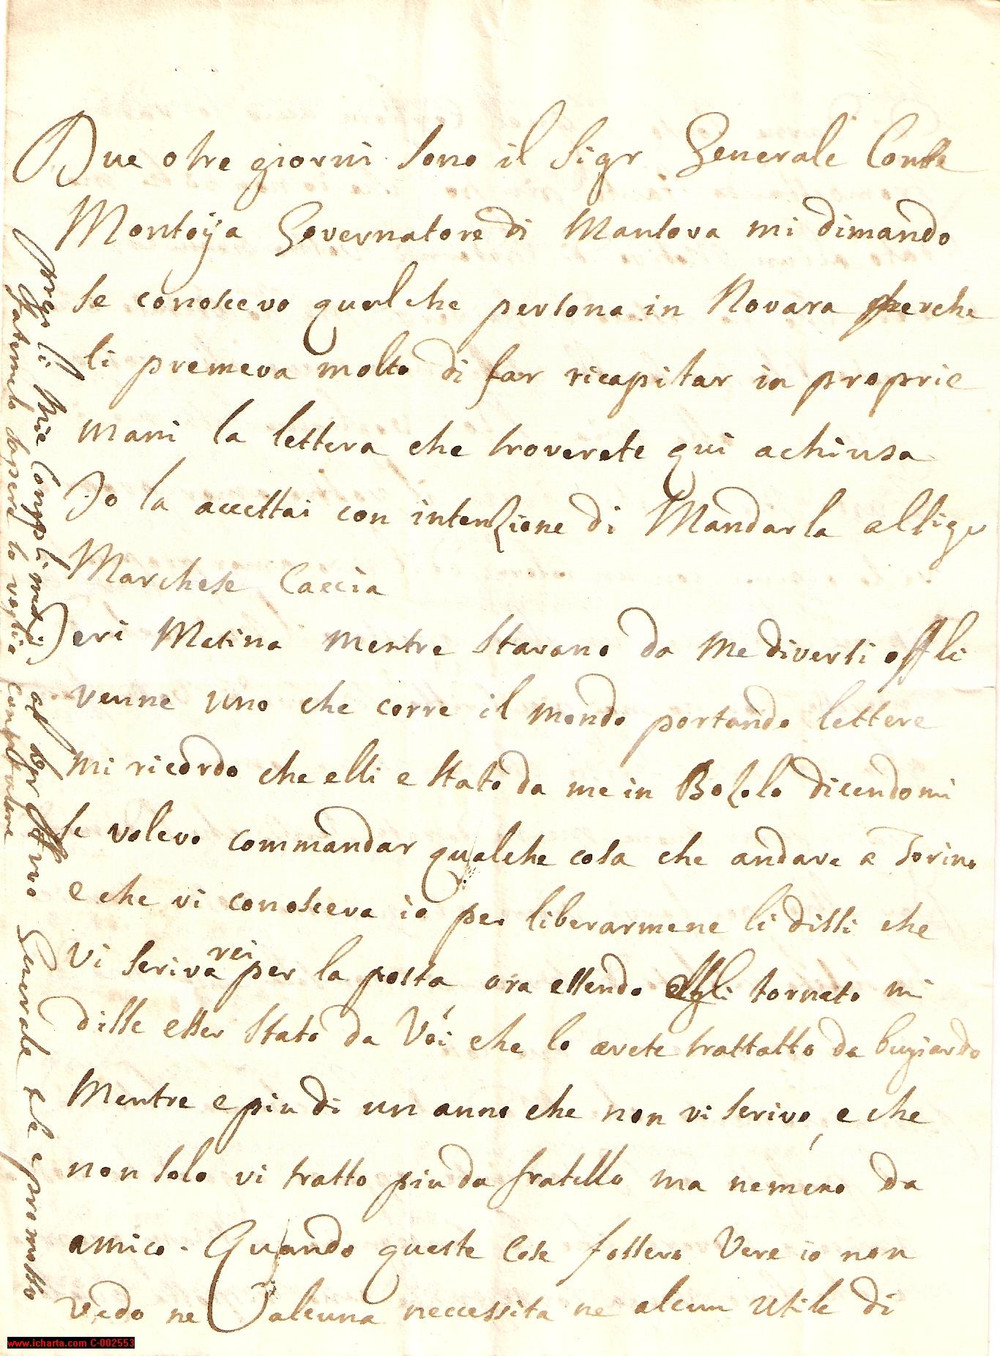 Due o tre giorni sono il Sigr Generale Conte
Montoÿa Governatore di Mantova mi dimando
se conoscevo qualche persona in Novara perche
li premeva molto di far ricapitar in proprie
mani la lettera che troverete qui achiusa
Jo la accettai con intenzione di Mandarla al Sigr
Marchese Caccia
Jeri Matina mentre stavano da me diversi offli
venne uno che corre il mondo portando lettere
mi ricordo che elli e stato da me in Bozolo dicendomi
se volevo commandar qualche cosa che andava a Torino
e che vi conosceva io per liberarmene li dissi che
vi scriva
rei
per la posta ora essendo egli tornato mi
disse esser stato da Vói che lo avete trattatto da bugiardo
Mentre e piu di un anno che non vi scrivo, e che
non solo vi tratto piu da fratello ma nemeno da
amico. Quando queste cose fossero Vere io non
vedo ne alcuna neccessita ne alcun utile di
li Mie Complimti al Sigr Generale che e promosso
fatemelo sapere lo voglio
www.icharta.com C-002553